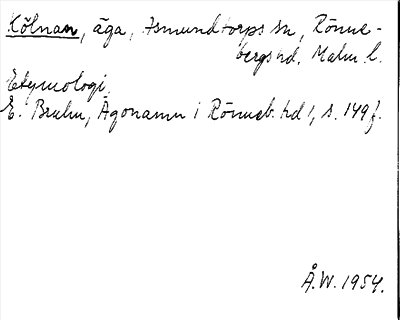 Kölnan, äga, Asmundtorps sn, Rönne-
bergs hd, Malm. l.
Etymologi.
E. Bruhn, Ägonamn i Rönneb. hd 1, s. 149 f.
Å.W. 1954.